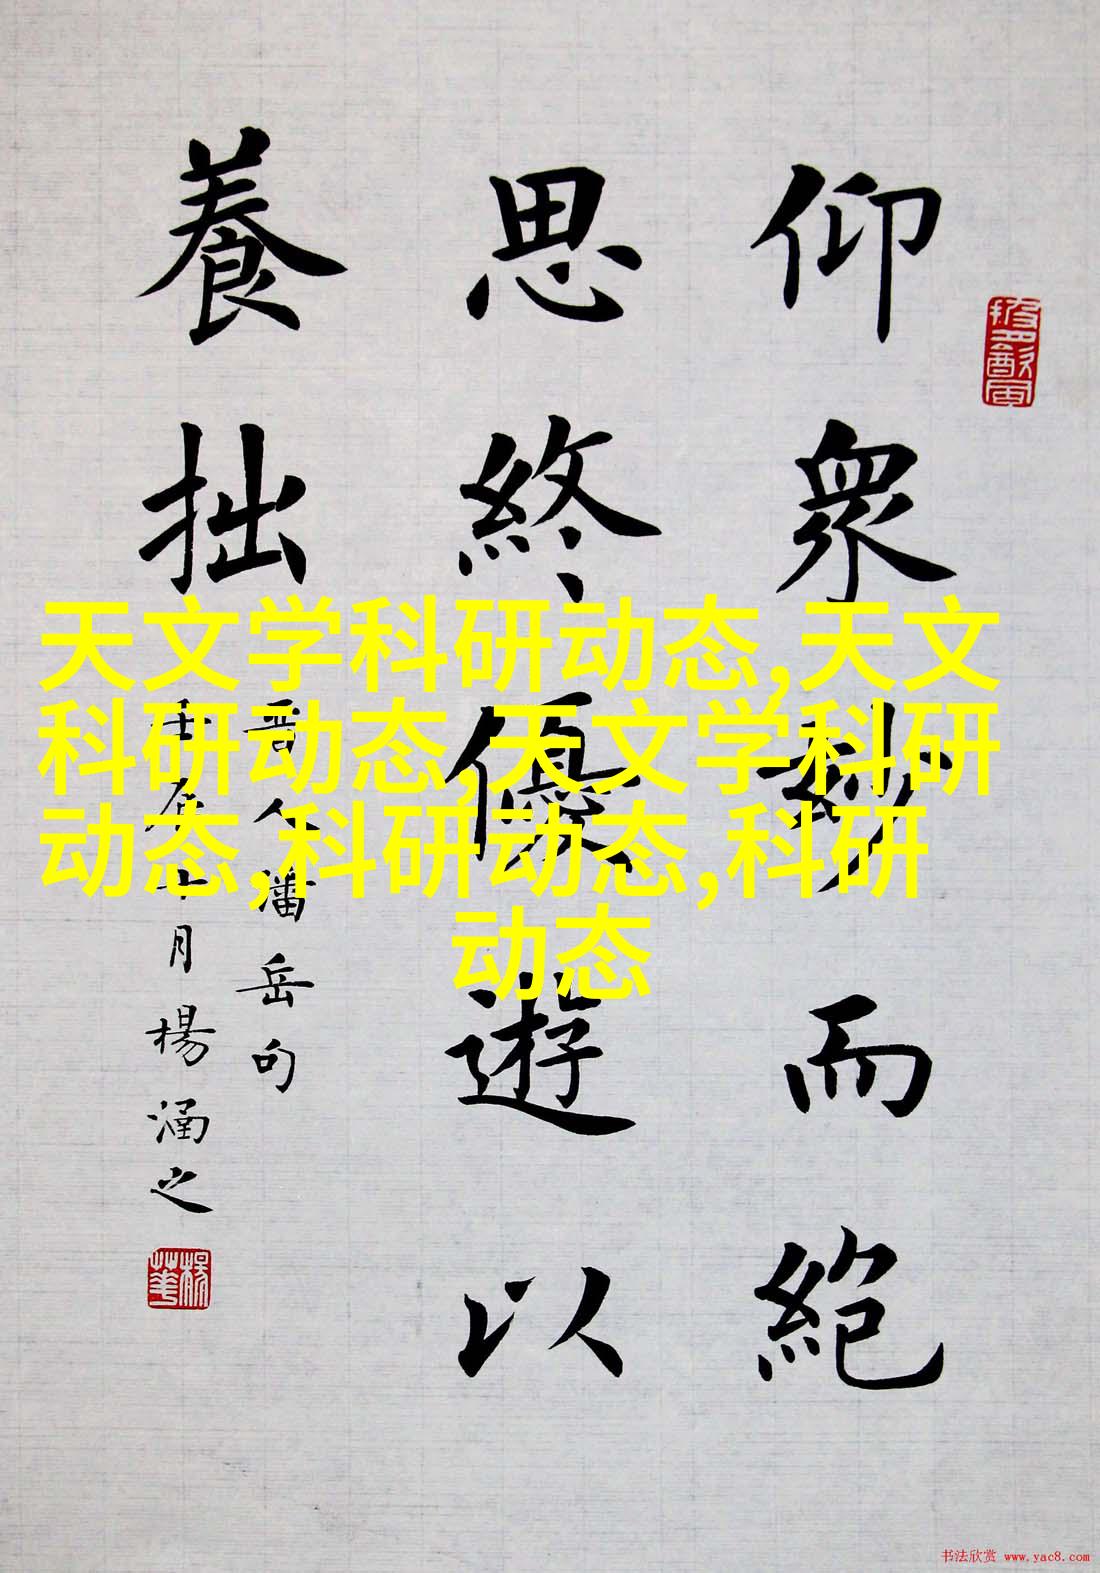 仰衆妙而絶
思終優遊以
養拙
晋人潘岳句
壬辰十月楊涵之
天文学科研动态,天文
科研动态,天文学科研
动态,科研动态,科研
动态
书法欣赏 www.yac8.com